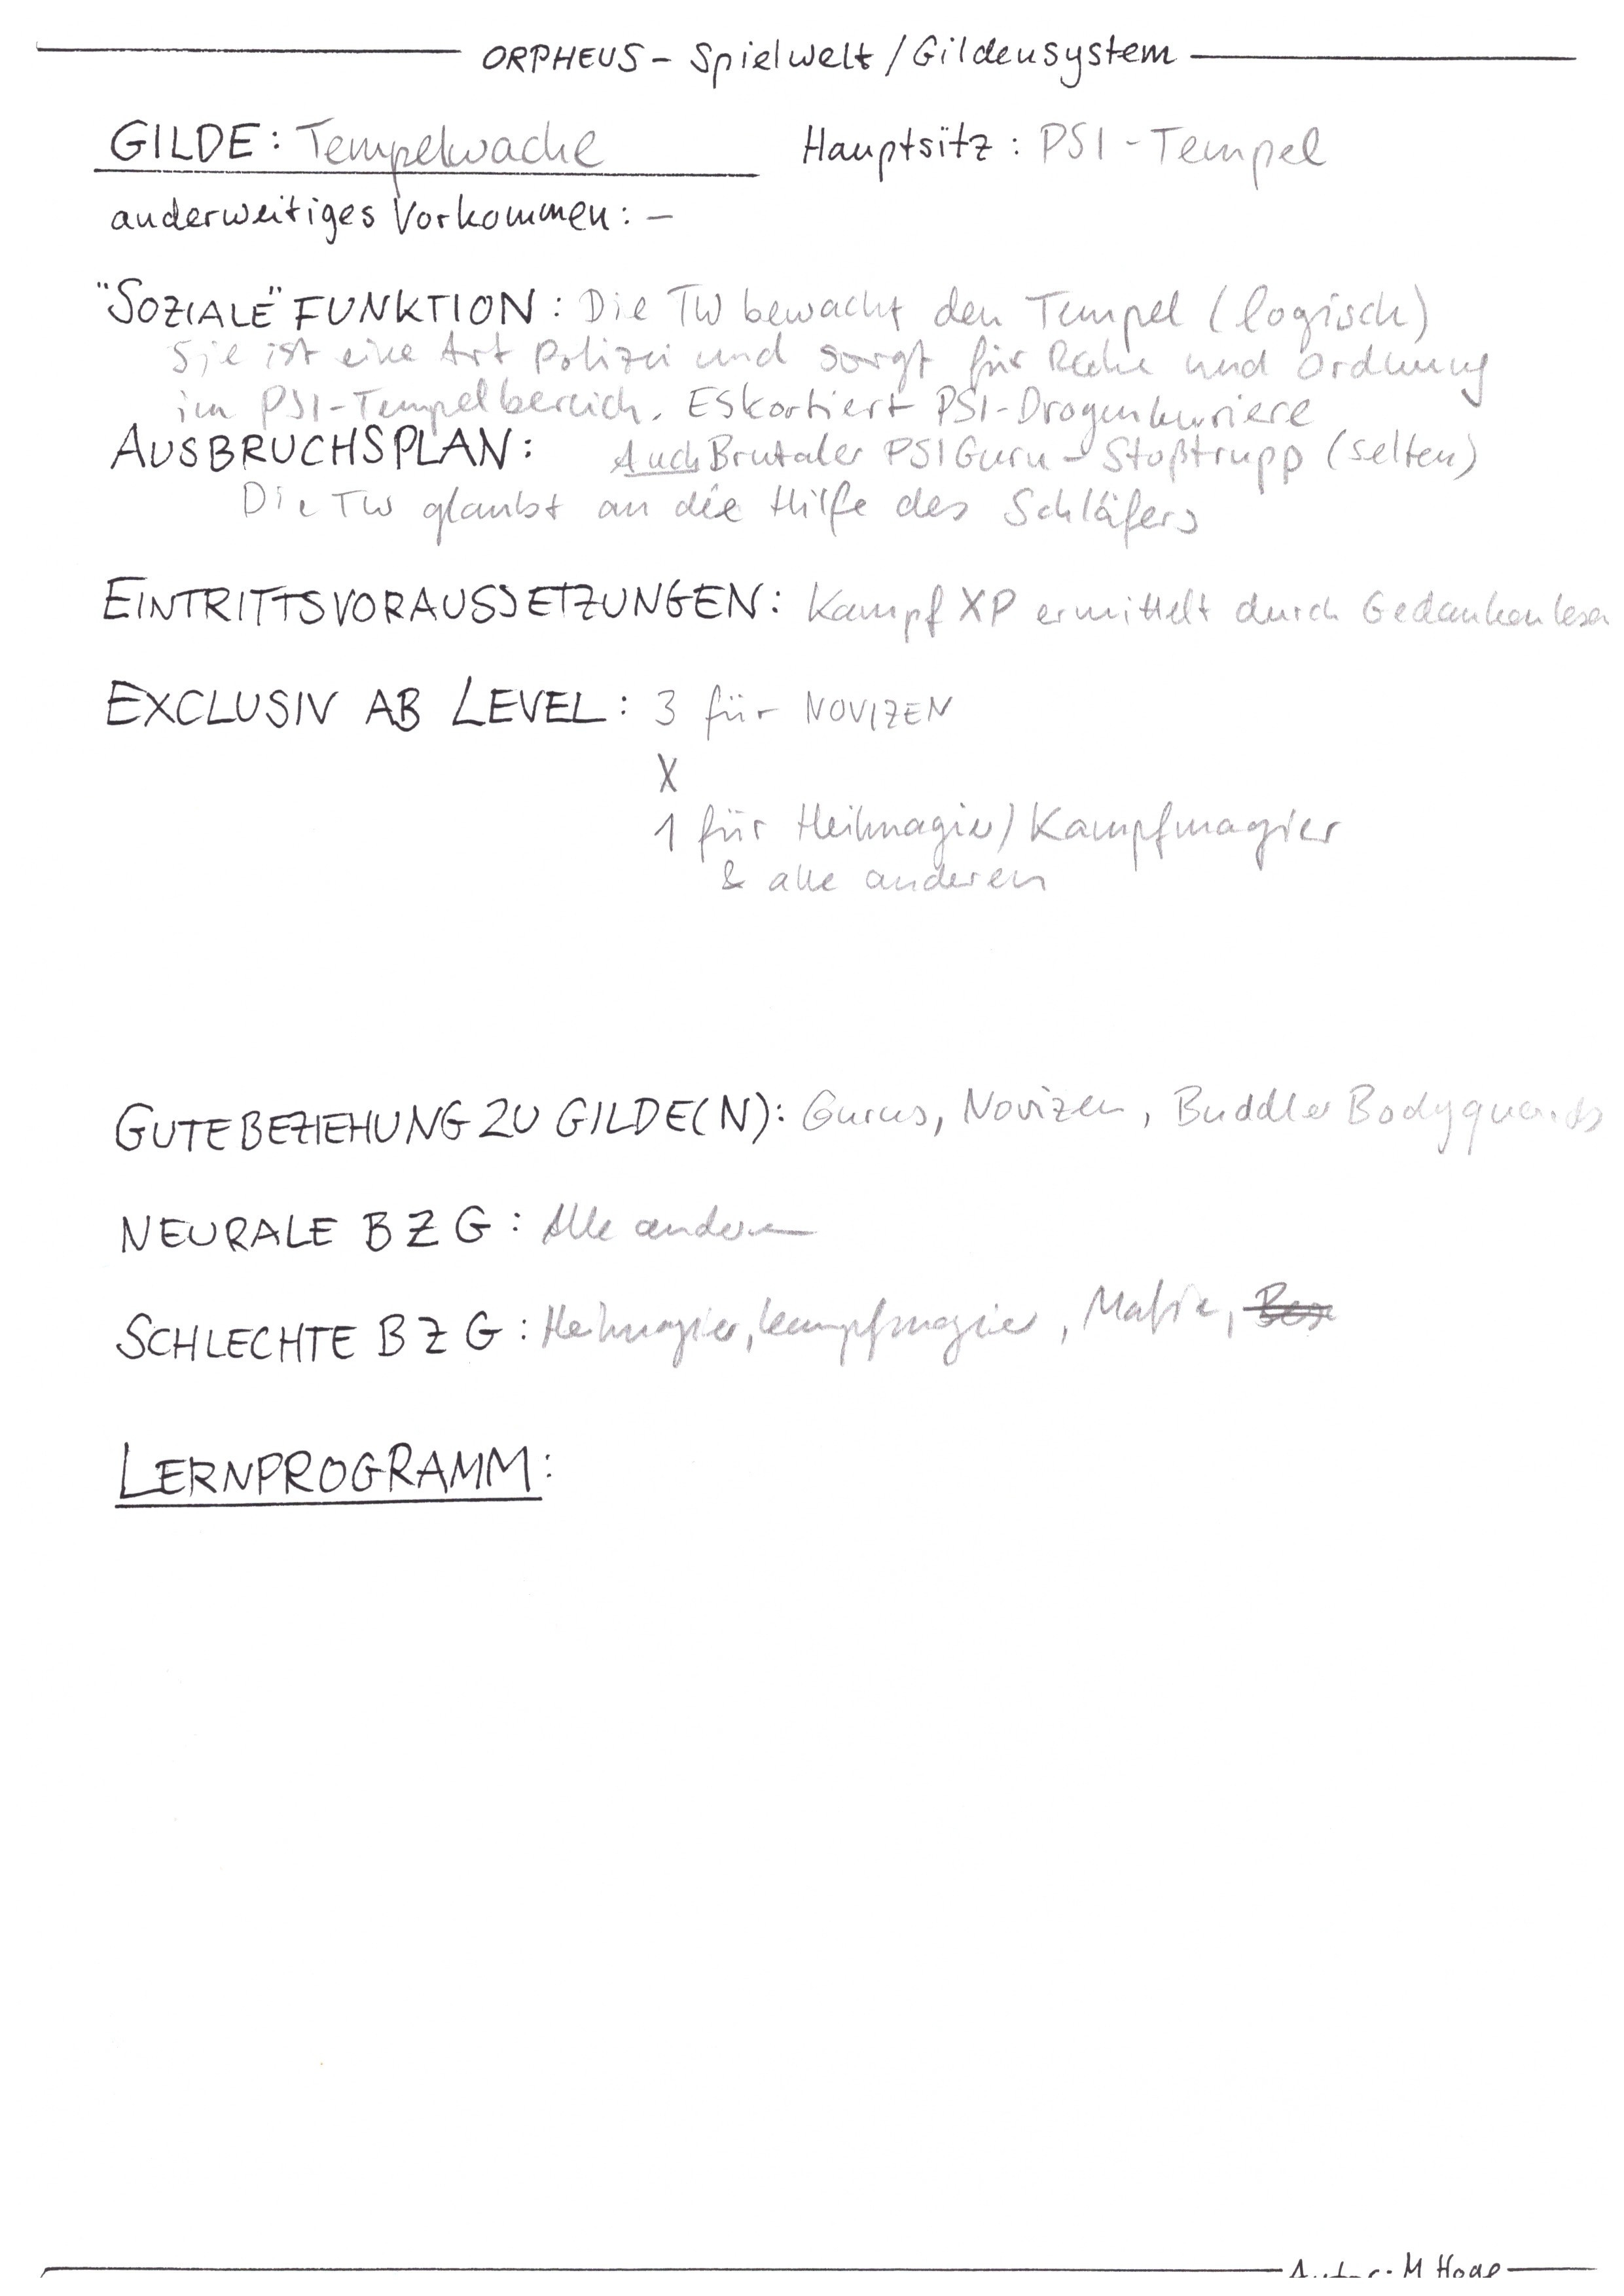 ORPHEUS - Spielwelt / Gildensystem
GILDE: Tempelwache Hauptsitz: PSI-Tempel
anderweitiges Vorkommen: -
"SOZIALE" FUNKTION: Die TW bewacht den Tempel (logisch)
Sie ist eine Art Polizei und sorgt für Ruhe und Ordnung
im PSI-Tempelbereich. ESkortiert PSI-Drogenkuriere
AUSBRUCHSPLAN: Auch Brutaler PSI Guru-Stoßtrupp (selten)
Die TW glaubt an die Hilfe des Schläfers
EINTRITTSVORAUSSETZUNGEN: Kampf XP ermittelt durch Gedankenlesen
EXCLUSIV AB LEVEL: 3 für NOVIZEN
X
1 für Heilmagier/Kampfmagier
& alle anderen
GUTE BEZIEHUNG ZU GILDE(N): Gurus, Novizen, Buddler Bodyguards
NEURALE B Z G: Alle anderen
SCHLECHTE B Z G: Heilmagier, Kampfmagier, Mafia,
LERNPROGRAMM:
Autor: M Hoge